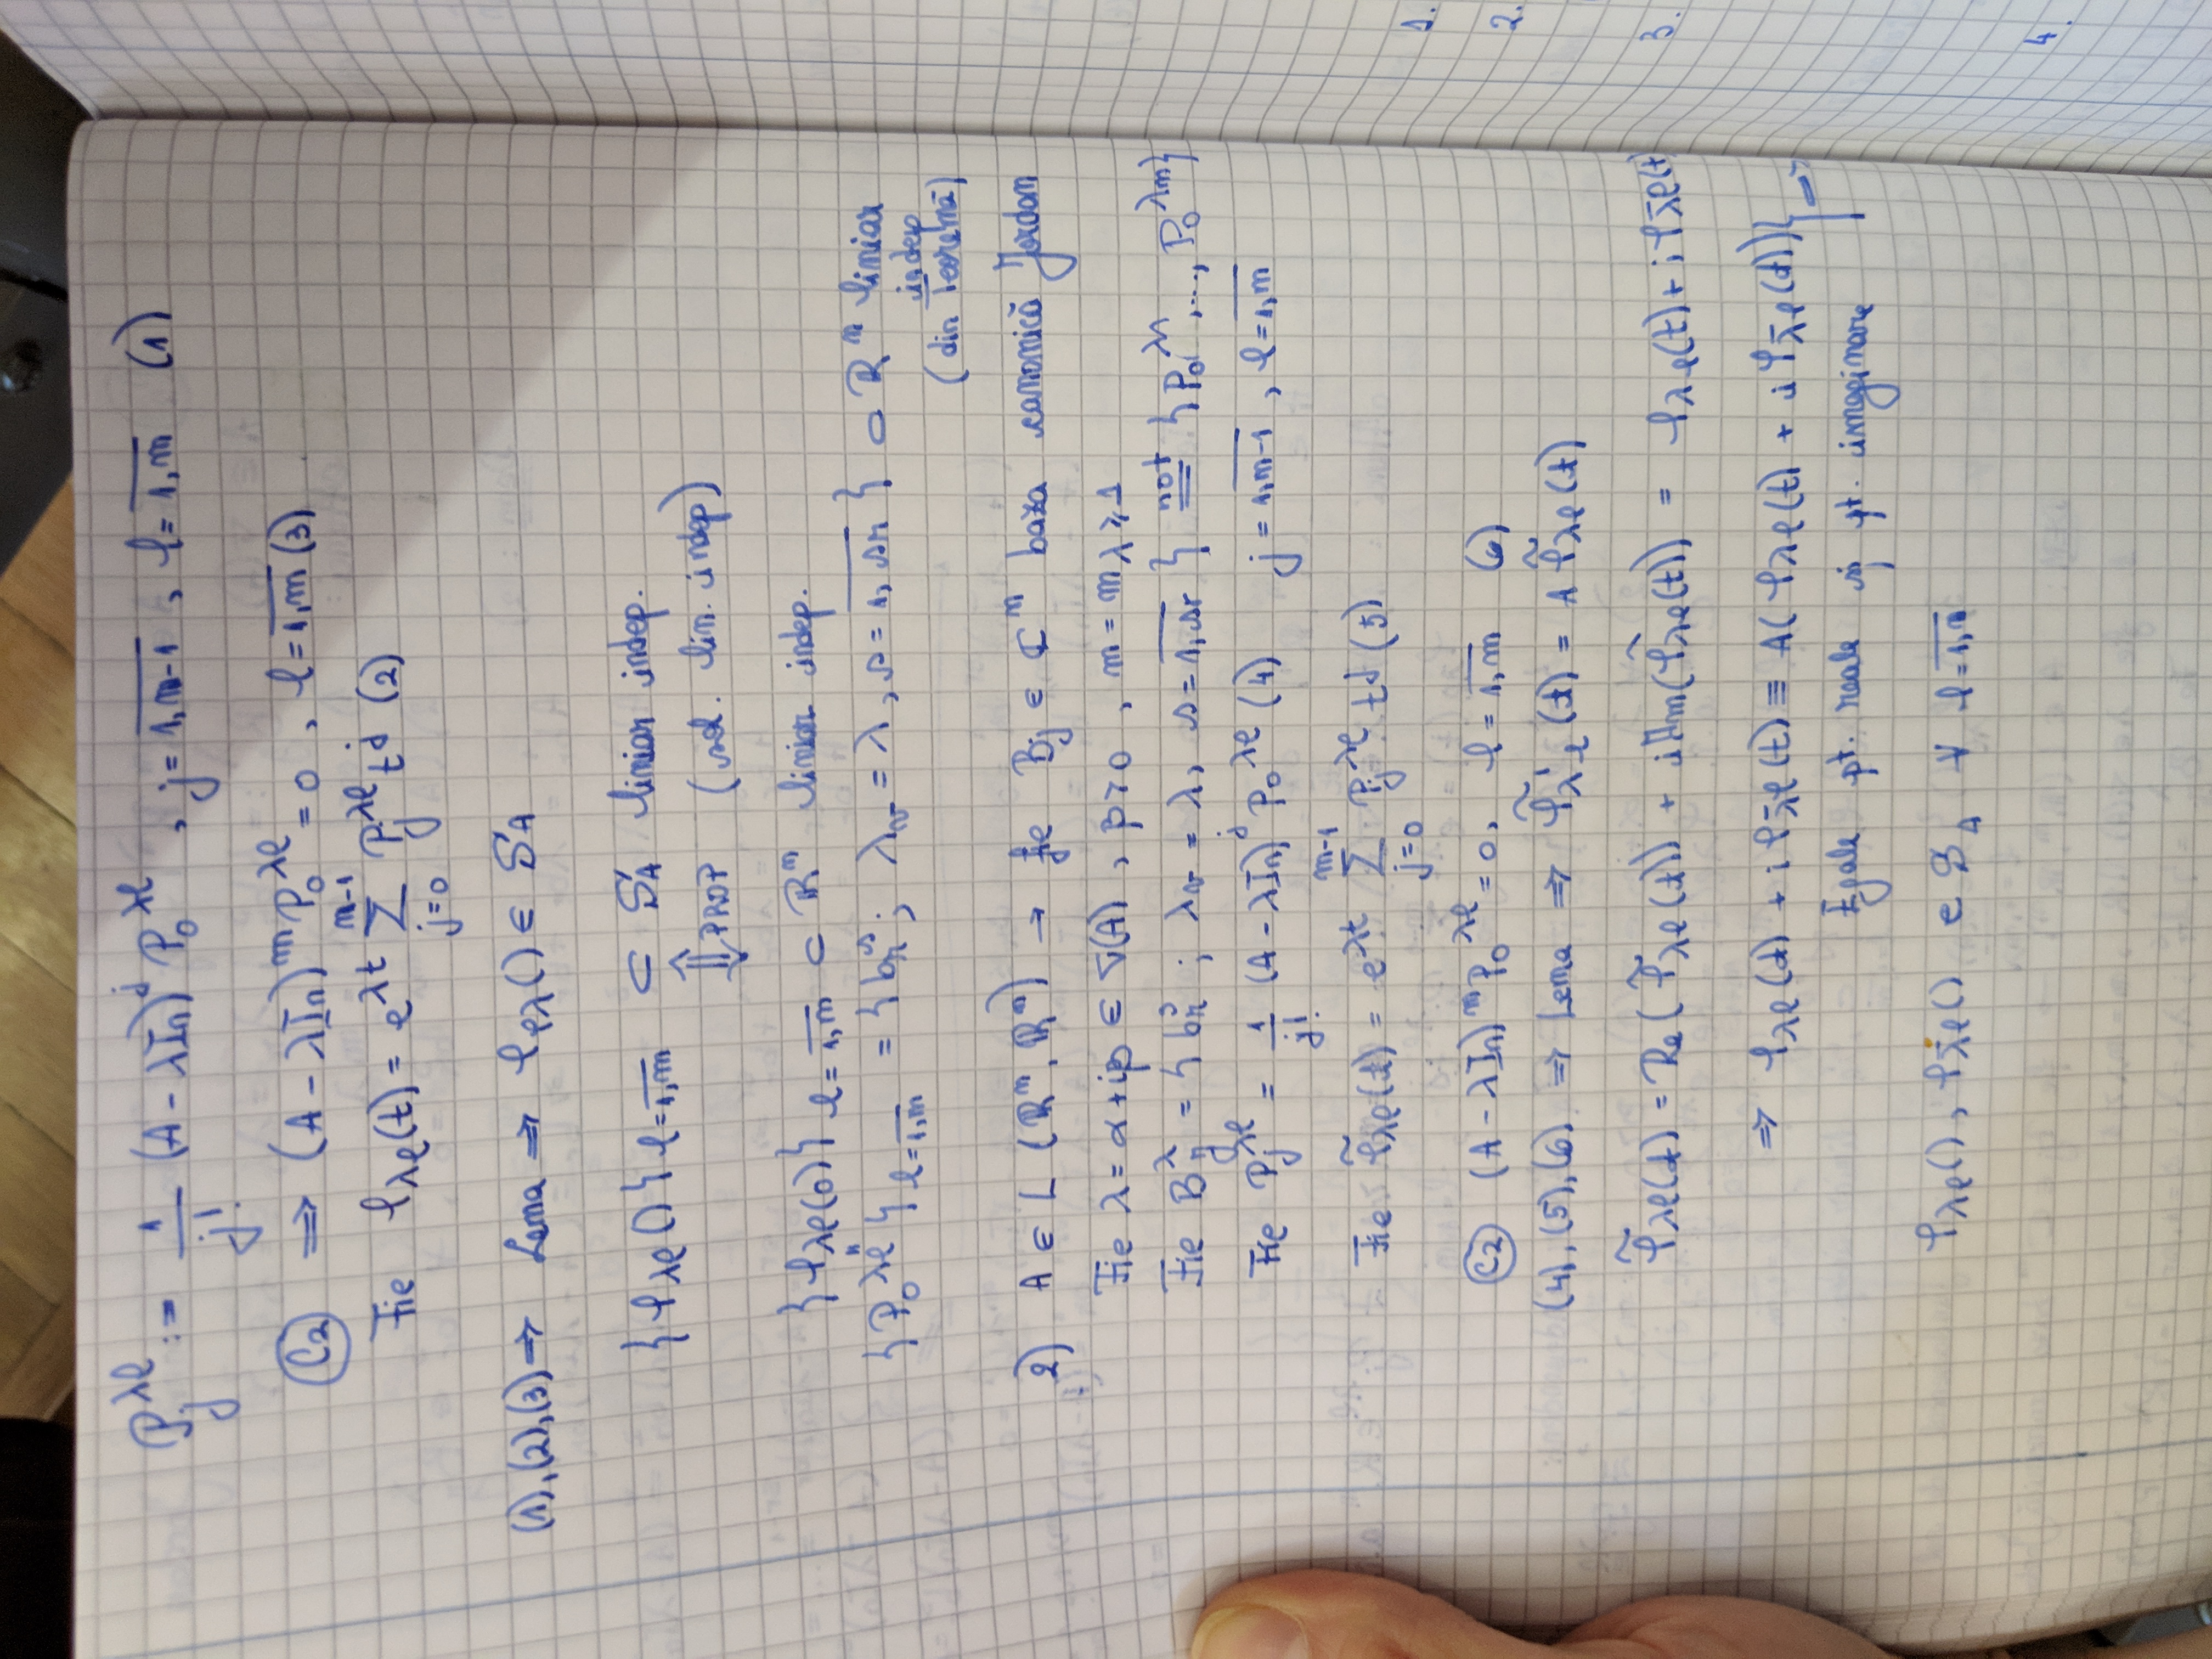 P_j^{λl} := 1/j! (A - λI_n)^j P_0^{λl} , j = \overline{1,m-1} , l = \overline{1,m} (1)
(C2) ⟹ (A - λI_n)^m P_0^{λl} = 0 , l = \overline{1,m} (3)
Fie φ_{λl}(t) = e^{λt} \sum_{j=0}^{m-1} P_j^{λl} t^j (2)
(1), (2), (3) ⟹ Lema ⟹ φ_{lλ}() ∈ S_A
{φ_{λl}()}_{l=\overline{1,m}} ⊂ S_A liniar indep.
⇕ PROP (sol. lin. indep)
{φ_{λl}(0)}_{l=\overline{1,m}} ⊂ R^n liniar indep.
"
{P_0^{λl}}_{l=\overline{1,m}} = {b_r^s; λ_r = λ, s = \overline{1,s_r}} ⊂ R^n liniar
indep
(din Teoremă)
2) A ∈ L (R^n, R^n) → fie B_J ∈ C^n baza canonică Jordan
Fie λ = α + iβ ∈ σ(A) , β > 0 , m = m_λ ⩾ 1
Fie B_J^λ = {b_r^s ; λ_r = λ, s = \overline{1,s_r}} \overset{not}{=} {P_0^{λ1}, ..., P_0^{λm}}
Fie P_j^{λl} = 1/j! (A - λI_n)^j P_0^{λl} (4) j = \overline{1,m-1} , l = \overline{1,m}
Fie \tilde{φ}_{λl}(t) = e^{λt} \sum_{j=0}^{m-1} P_j^{λl} t^j (5)
(C2) (A - λI_n)^m P_0^{λl} = 0, l = \overline{1,m} (6)
(4), (5), (6) ⟹ Lema ⟹ \tilde{φ}'_{λl}(t) = A \tilde{φ}_{λl}(t)
\tilde{φ}_{λl}(t) = Re(\tilde{φ}_{λl}(t)) + i Im(\tilde{φ}_{λl}(t)) = φ_{λl}(t) + i φ_{\bar{λ}l}(t)
⟹ φ_{λl}(t) + i φ_{\bar{λ}l}(t) ≡ A(φ_{λl}(t) + i φ_{\bar{λ}l}(t)) } ⟹
Egale pt. reale și pt. imaginare
φ_{λl}(), φ_{\bar{λ}l}() ∈ S_A ∀ l = \overline{1,m}
1.
2.
3.
4.